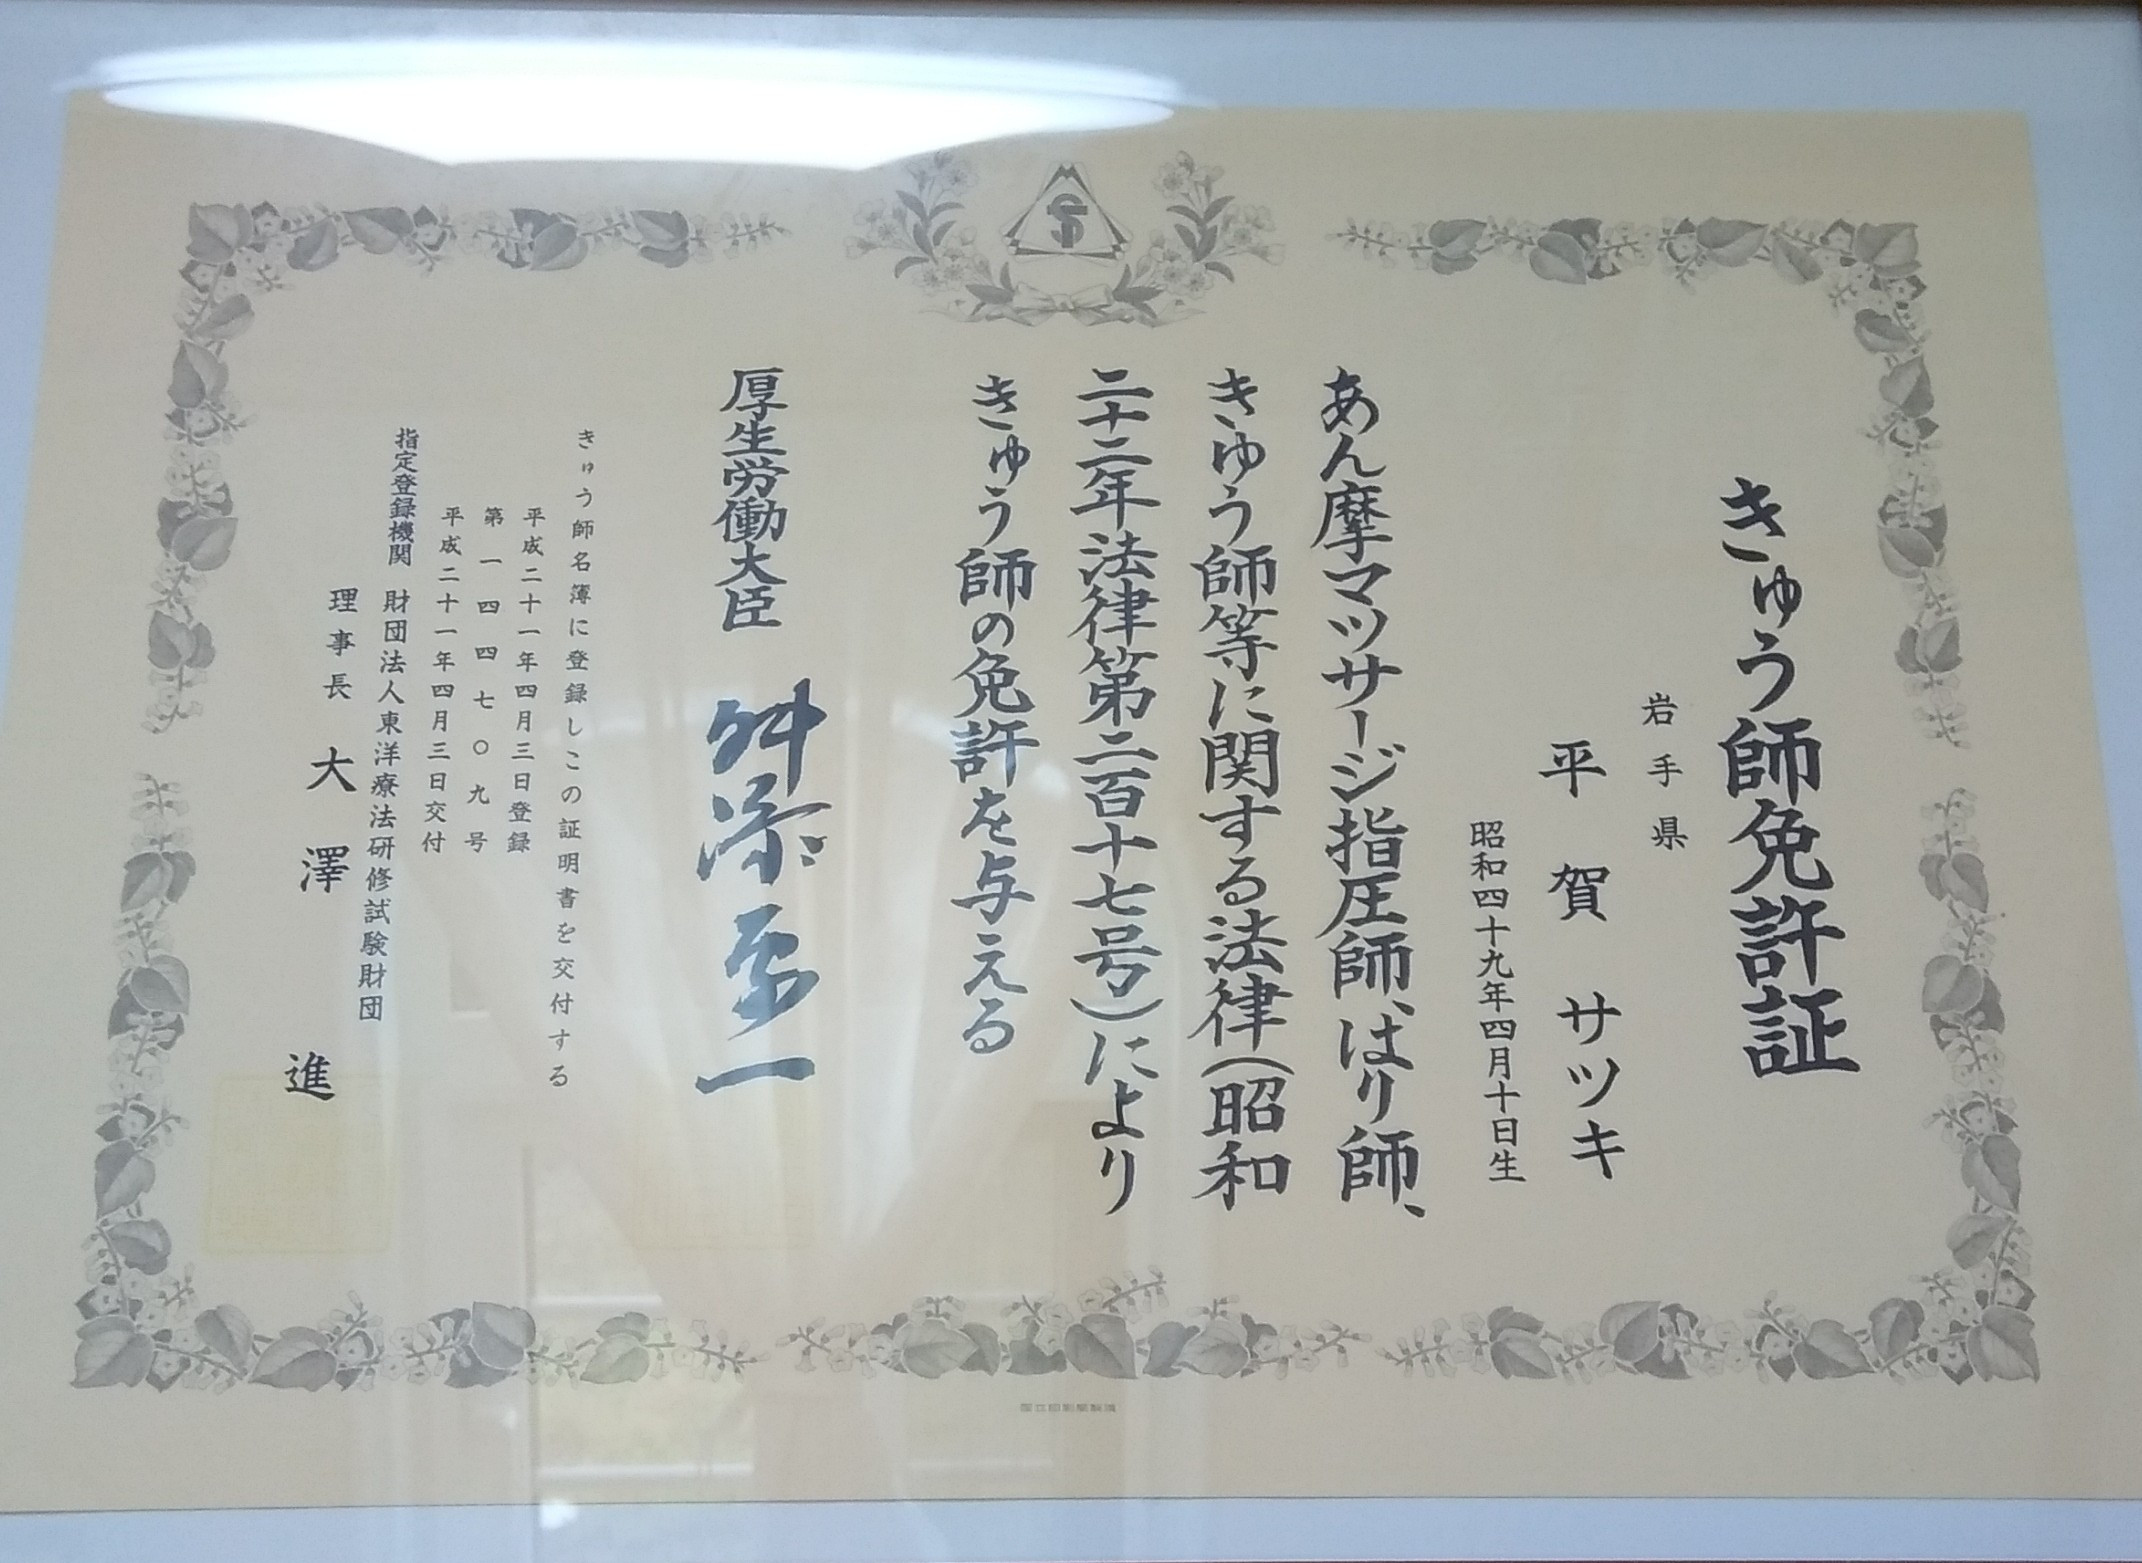 きゅう師免許証
岩手県
平賀サツキ
昭和四十九年四月十日生
あん摩マツサージ指圧師、はり師、
きゆう師等に関する法律(昭和
二十二年法律第二百十七号)により
きゆう師の免許を与える
厚生労働大臣 舛添要一
きゅう師名簿に登録しこの証明書を交付する
平成二十一年四月三日登録
第一四四七〇九号
平成二十一年四月三日交付
指定登録機関 財団法人東洋療法研修試験財団
理事長 大澤進
国立印刷局製造